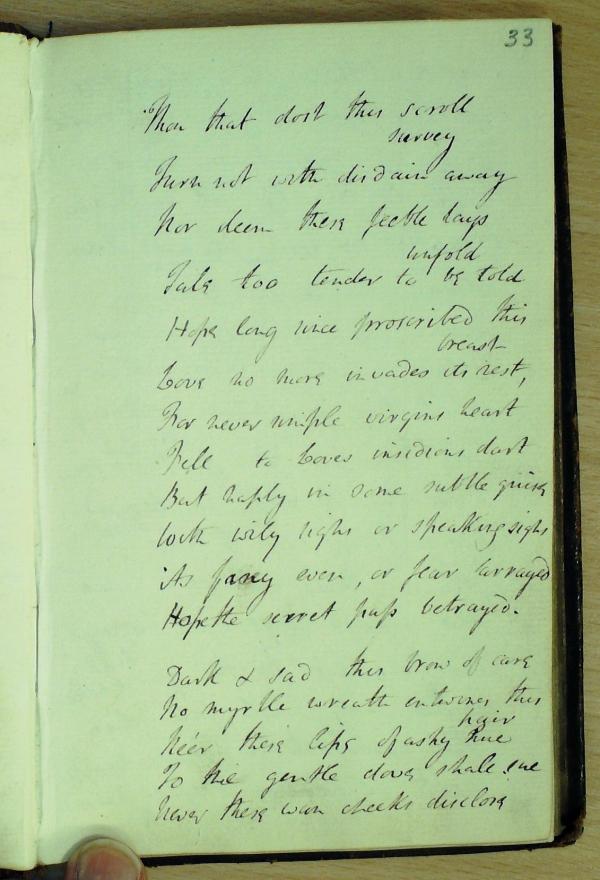 33
Thou that dost this scroll
survey
Turn not with disdain away
Nor deem these feeble lays
unfold
Tale too tender to be told
Hope long since proscribed this
breast
Love no more invades its rest,
For never simple virgins heart
Fell to Loves insidious dart
But haply in some subtle guise
With wily sighs or speaking sighs
As fancy even, or fear arrayed
Hope the secret pass betrayed.
Dark & sad this brow of care
No myrtle wreath entwines this
hair
Ne'er these lips of ashy hue
To the gentle dove shall sue
Never these wan cheeks disclose